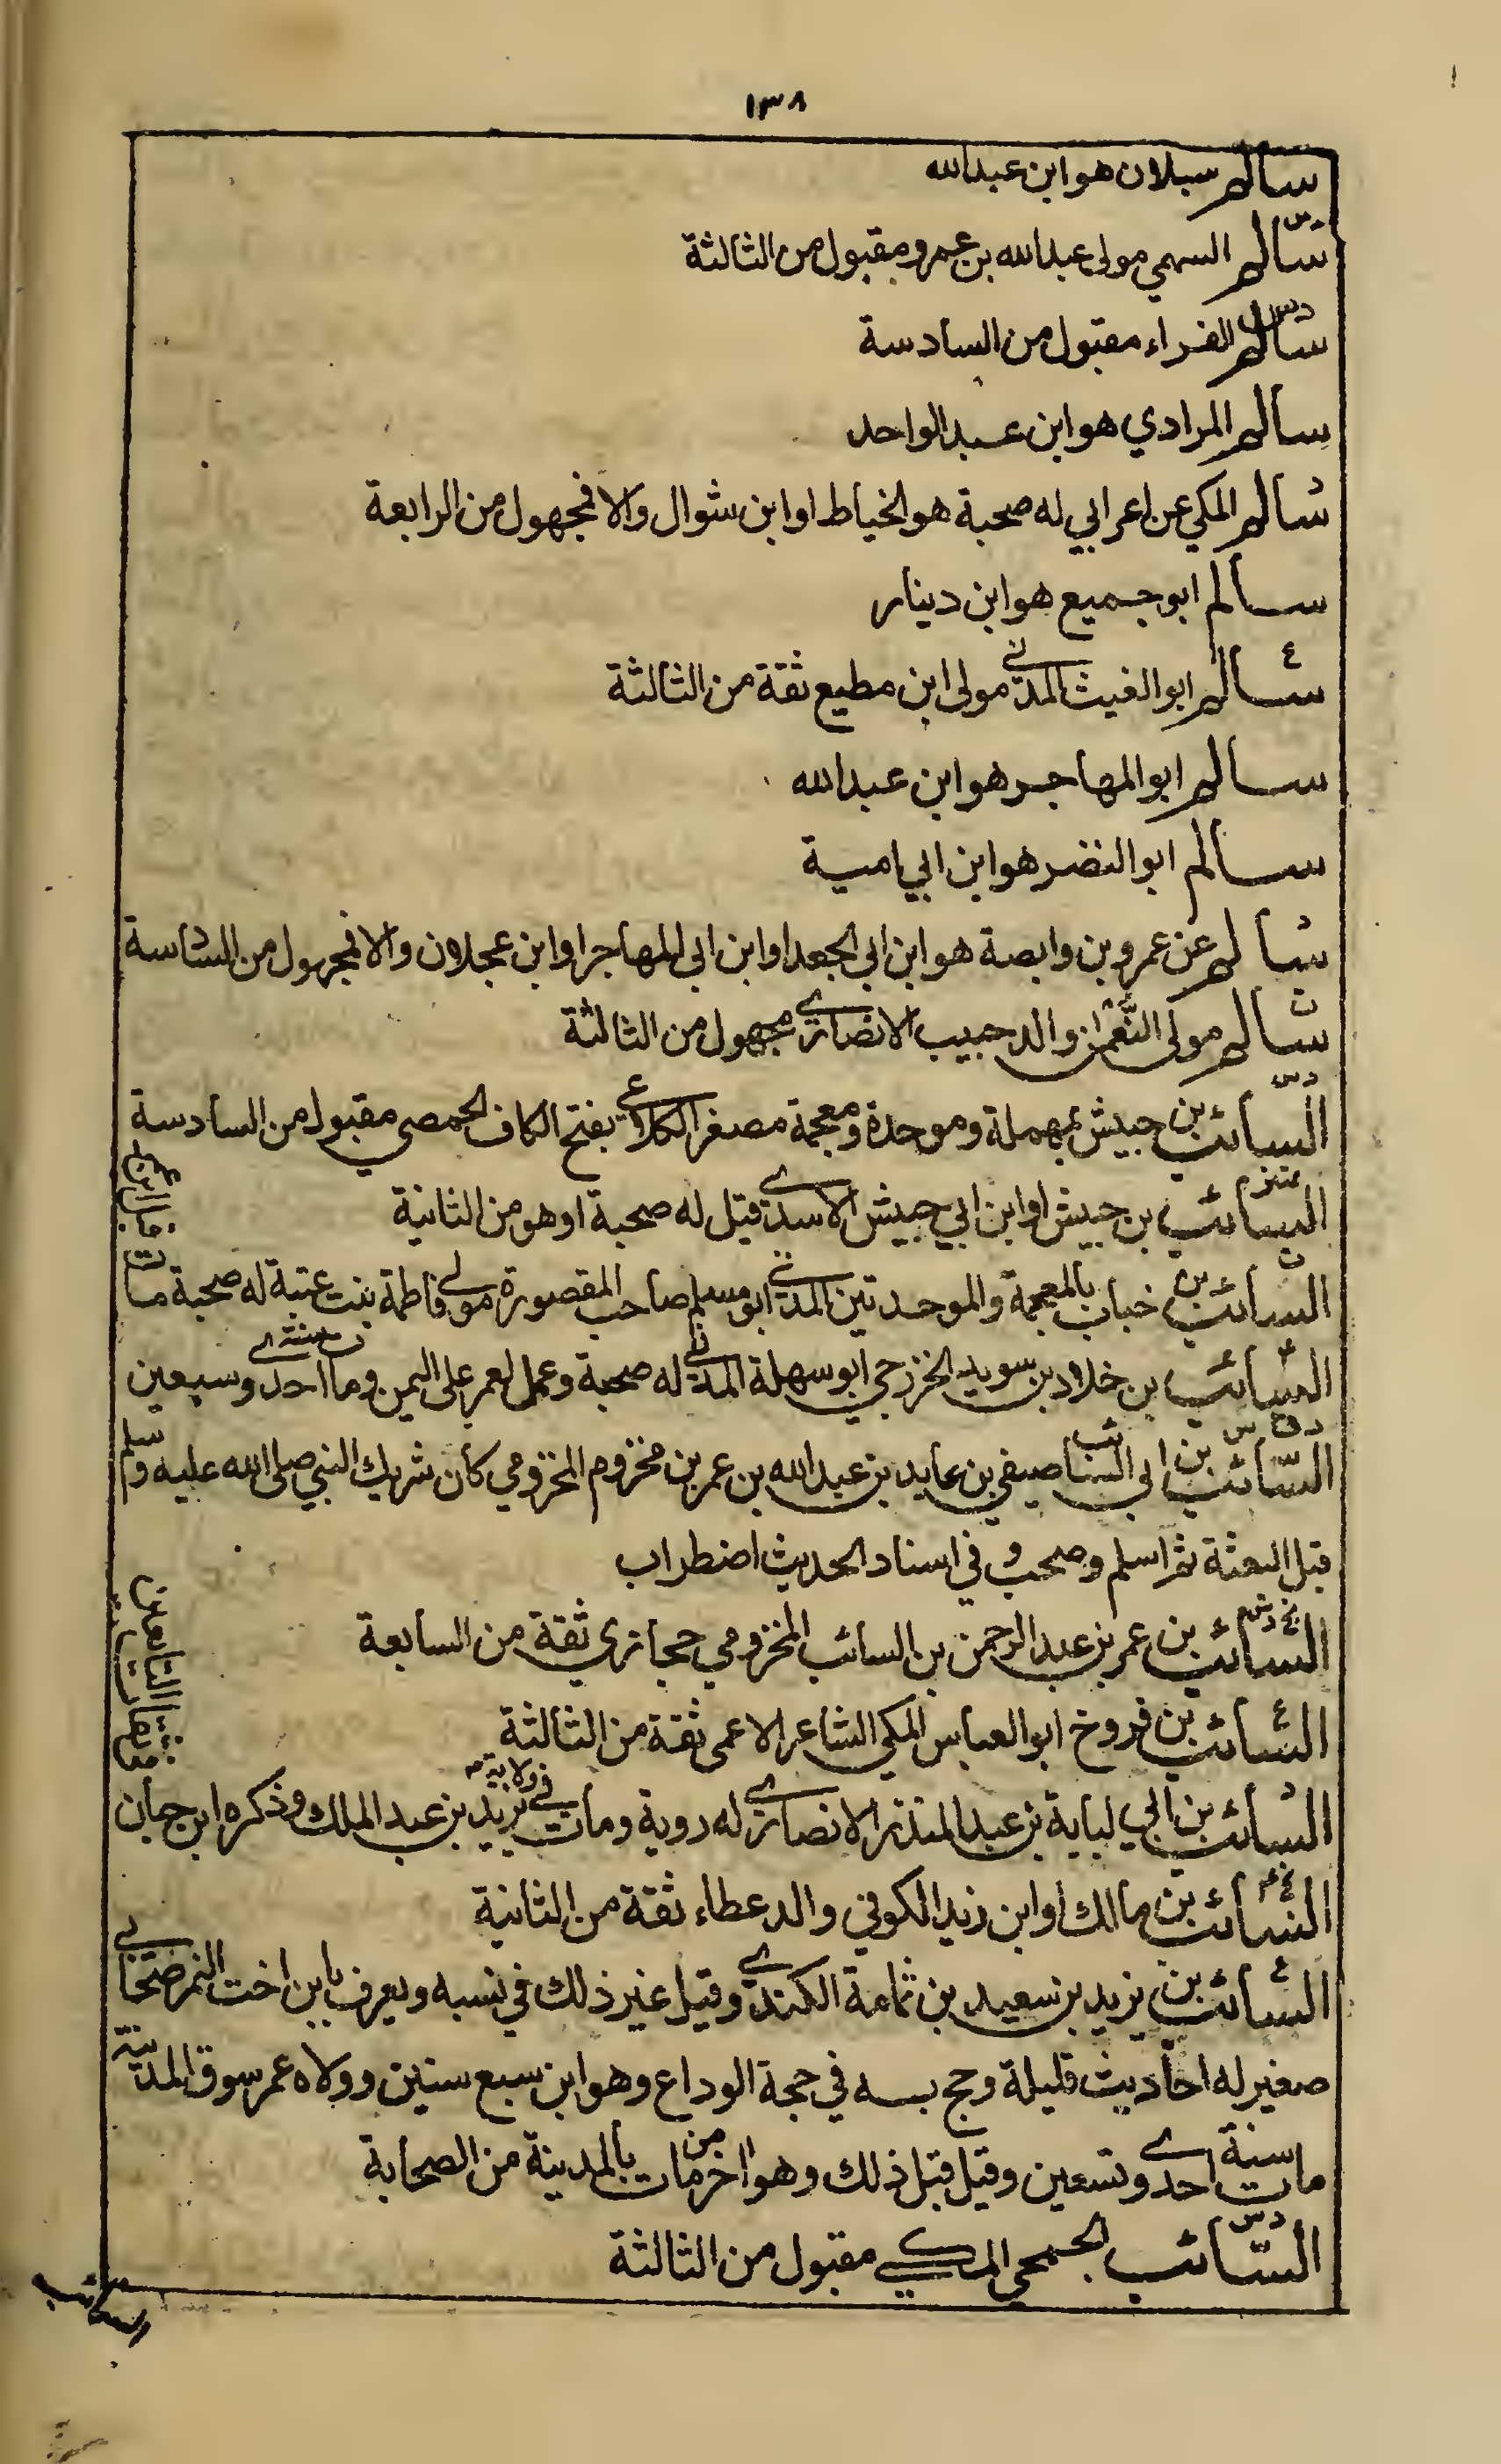 ١٣٨
سالم سبلان هو ابن عبدالله
سالم السهمي مولى عبدالله بن عمرو مقبول من الثالثة
سالم الفراء مقبول من السادسة
سالم المرادي هو ابن عبدالواحد
سالم المكي عن اعرابي له صحبة هو الخياط او ابن شوال والا فمجهول من الرابعة
سالم ابو جميع هو ابن دينار
سالم ابو الغيث المدني مولى ابن مطيع ثقة من الثالثة
سالم ابو المهاجر هو ابن عبدالله
سالم ابو النضر هو ابن ابي امية
سالم عن عمرو بن وابصة هو ابن ابي الجعد او ابن ابي المهاجر او ابن عجلان والا فمجهول من السادسة
سالم مولى النعمان والد حبيب الانصاري مجهول من الثالثة
السائب بن حبيش بمهملة وموحدة ومعجمة مصغر الكلاعي بفتح الكاف الحمصي مقبول من السادسة
السائب بن حبيش او ابن ابي حبيش الاسدي قيل له صحبة او هو من الثانية
السائب بن خباب بالمعجمة والموحدتين المدني ابو مسلم صاحب المقصورة مولى فاطمة بنت عتبة له صحبة مات
السائب بن خلاد بن سويد الخزرجي ابو سهلة المدني له صحبة وعمل لعمر على اليمن ومات سنة احدى وسبعين
السائب بن ابي السائب صيفي بن عايد بن عبدالله بن عمر بن مخزوم المخزومي كان شريك النبي صلى الله عليه وسلم
قبل البعثة ثم اسلم وصحب وفي اسناد الحديث اضطراب
السائب بن عمر بن عبدالرحمن بن السائب المخزومي حجازي ثقة من السابعة
السائب بن فروخ ابو العباس المكي الشاعر الاعمى ثقة من الثالثة
السائب بن ابي لبابة بن عبدالمنذر الانصاري له روية ومات في ولاية يزيد بن عبدالملك وذكره ابن حبان
السائب بن مالك او ابن زيد الكوفي والد عطاء ثقة من الثانية
السائب بن يزيد بن سعيد بن ثمامة الكندي وقيل غير ذلك في نسبه ويعرف بابن اخت النمر صحابي
صغير له احاديث قليلة وحج به في حجة الوداع وهو ابن سبع سنين وولاه عمر سوق المدينة
مات سنة احدى وتسعين وقيل قبل ذلك وهو اخر من مات بالمدينة من الصحابة
السائب الجمحي المكي مقبول من الثالثة